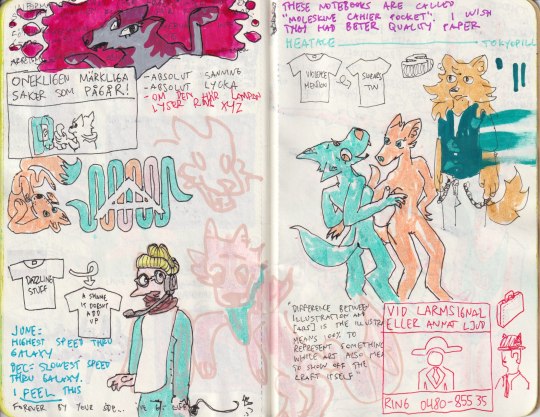 ONEKLIGEN MÄRKLIGA
SAKER SOM PÅGÅR!
-ABSOLUT SANNING
-ABSOLUT LYCKA
-OM DEN HÄR LAMPAN
LYSER RING XYZ
DAZZLING
STUFF
A SHAME
IS DOESN'T
ADD
UP
JUNE=
HIGHEST SPEED THRU
GALAXY
DEC= SLOWEST SPEED
THRU GALAXY.
I FEEL THIS
FOREVER BY YOUR SIDE...
THESE NOTEBOOKS ARE CALLED
"MOLESKINE CAHIER POCKET". I WISH
THAT HAD BETER QUALITY PAPER
HEATALE
TOKYOPILL
VIOLENCE
TIN
"DIFFERENCE BETWEEN
ILLUSTRATION AND
[ART] IS THE ILLUSTR
MEANS 100% TO
REPRESENT SOMETHING
WHILE ART ALSO MEA
TO SHOW OFF THE
CRAFT ITSELF"
VID LARMSIGNAL
ELLER ANNAT LJUD
RING 0480-855 35